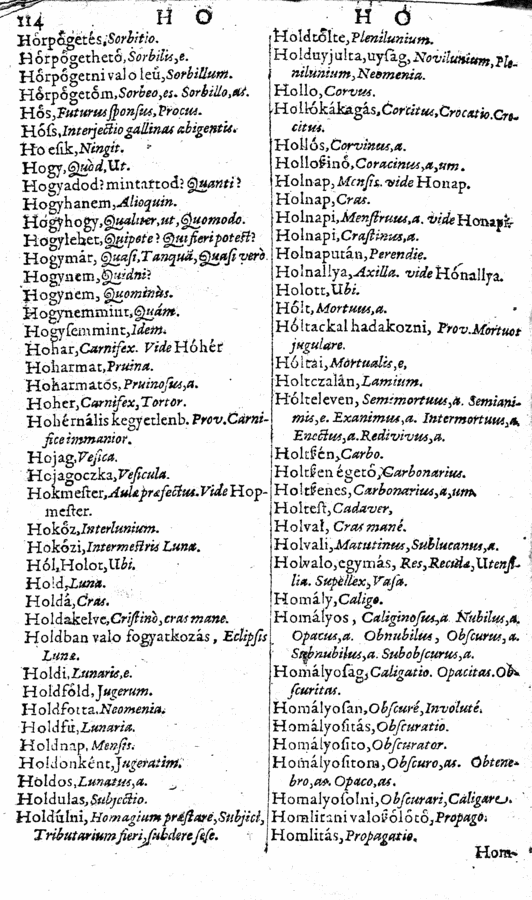 114 H O H O
Hörpögetés, Sorbitio.
Hörpögethetö, Sorbilis,e.
Hörpögetni valo leü, Sorbillum.
Hörpögetöm, Sorbeo,es. Sorbillo,as.
Hős, Futurus sponsus, Procus.
Hóss, Interjectio gallinas abigentis.
Ho esik, Ningit.
Hogy, Quòd, Ut.
Hogyadod? mintartod? Quanti?
Hogyhanem, Alioquin.
Hogyhogy, Qualiter, ut, Quomodo.
Hogylehet, Quipote? Qui fieri potest?
Hogymár, Quasi, Tanquã, Quasi verò.
Hogynem, Quidni?
Hogynem, Quominùs.
Hogynemmint, Quám.
Hogysemmint, Idem.
Hohar, Carnifex. Vide Hóhér
Hoharmat, Pruina.
Hoharmatós, Pruinosus,a.
Hoher, Carnifex, Tortor.
Hohérnális kegyetlenb. Prov. Carni-
fice immanior.
Hojag, Vesica.
Hojagoczka, Vesicula.
Hokmester, Aulæ præfectus. Vide Hop-
mester.
Hokőz, Interlunium.
Hokőzi, Intermestris Lunæ.
Hól, Holot, Ubi.
Hold, Luna.
Holdá, Cras.
Holdakelve, Cristinò, cras mane.
Holdban valo fogyatkozás, Eclipsis
Lunæ.
Holdi, Lunaris,e.
Holdföld, Jugerum.
Holdfotta. Neomenia.
Holdfü, Lunaria.
Holdnap, Mensis.
Holdonként, Jugeratim.
Holdos, Lunatus,a.
Holdulas, Subjectio.
Holdúlni, Homagium præstare, Subjici,
Tributarium fieri, subdere sese.
Holdtőlte, Plenilunium.
Holduyjulta, uysag, Novilunium, Ple-
nilunium, Neomenia.
Hollo, Corvus.
Hollókákagás, Corcitus, Crocatio. Cro-
citus.
Hollós, Corvinus,a.
Hollosinó, Coracinus,a,um.
Holnap, Mensis. vide Honap.
Holnap, Cras.
Holnapi, Menstruus,a. vide Honapi.
Holnapi, Crastinus,a.
Holnaputân, Perendie.
Holnallya, Axilla. vide Hónallya.
Holott, Ubi.
Hólt, Mortuus,a.
Hóltackal hadakozni, Prov. Mortuos
jugulare.
Hóltai, Mortualis,e,
Holteczalân, Lamium.
Hólteleven, Semimortuus,a. Semiani-
mis,e. Exanimus,a. Intermortuus,a,
Enectus,a. Redivivus,a.
Holtsén, Carbo.
Holtsen égető, Carbonarius.
Holtsenes, Carbonarius,a,um.
Holtest, Cadaver,
Holval, Cras mané.
Holvali, Matutinus, Sublucanus,a.
Holvalo, egymás, Res, Recula, Utensi-
lia. Supellex, Vasa.
Homály, Caligo.
Homályos, Caliginosus,a. Nubilus,a.
Opacus,a. Obnubilus, Obscurus,a.
Subnubilus,a. Subobscurus,a.
Homályosag, Caligatio. Opacitas. Ob-
scuritas.
Homályosan, Obscuré, Involuté.
Homályositás, Obscuratio.
Homályosito, Obscurator.
Homályositom, Obscuro,as. Obtene-
bro,as. Opaco,as.
Homalyosolni, Obscurari, Caligare.
Homlitani valo sólótó, Propago.
Homlitás, Propagatio.
Hom-